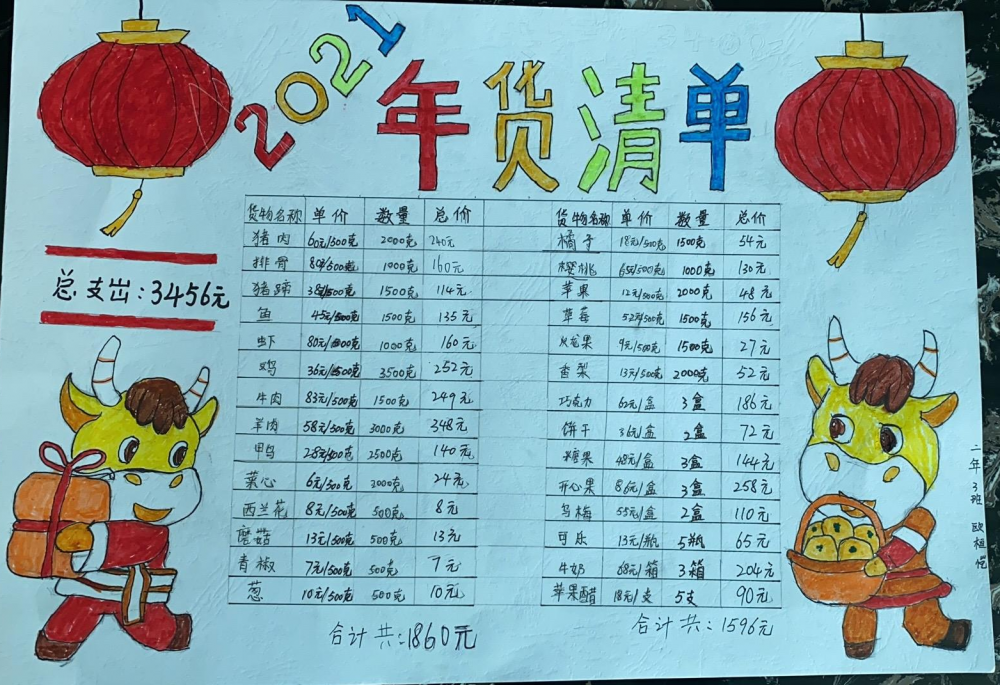 2021
年货清单
总支出：3456元
货物名称 单价 数量 总价
猪肉 60元/500克 2000克 240元
排骨 80/500克 1000克 160元
猪蹄 38/500克 1500克 114元
鱼 45元/500克 1500克 135元
虾 80元/500克 1000克 160元
鸡 36元/500克 3500克 252元
牛肉 83元/500克 1500克 249元
羊肉 58元/500克 3000克 348元
28元/500克 2500克 140元
菜心 6元/500克 2000克 24元
西兰花 8元/500克 500克 8元
磨菇 13元/500克 500克 13元
青椒 7元/500克 500克 7元
葱 10元/500克 500克 10元
合计共：1860元
货物名称 单价 数量 总价
橘子 18元/500克 1500克 54元
樱桃 65/500克 1000克 130元
苹果 12元/500克 2000克 48元
草莓 52元/500克 1500克 156元
火龙果 9元/500克 1500克 27元
香梨 13元/500克 2000克 52元
巧克力 62元/盒 3盒 186元
饼干 36元/盒 2盒 72元
糖果 48元/盒 3盒 144元
开心果 86元/盒 3盒 258元
乌梅 55元/盒 2盒 110元
可乐 13元/瓶 5瓶 65元
牛奶 68元/箱 3箱 204元
苹果醋 18元/支 5支 90元
合计共：1596元
二年3班 欧